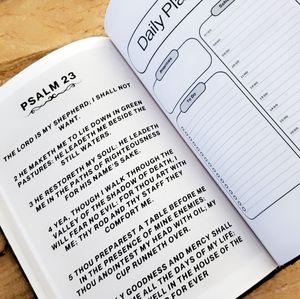 PSALM 23
THE LORD IS MY SHEPHERD; I SHALL NOT
WANT.
2 HE MAKETH ME TO LIE DOWN IN GREEN
PASTURES: HE LEADETH ME BESIDE THE
STILL WATERS.
3 HE RESTORETH MY SOUL: HE LEADETH
ME IN THE PATHS OF RIGHTEOUSNESS
FOR HIS NAME'S SAKE.
4 YEA, THOUGH I WALK THROUGH THE
VALLEY OF THE SHADOW OF DEATH, I
WILL FEAR NO EVIL: FOR THOU ART WITH
ME; THY ROD AND THY STAFF THEY
COMFORT ME.
5 THOU PREPAREST A TABLE BEFORE ME
IN THE PRESENCE OF MINE ENEMIES:
THOU ANOINTEST MY HEAD WITH OIL, MY
CUP RUNNETH OVER.
LY GOODNESS AND MERCY SHALL
ME ALL THE DAYS OF MY LIFE:
ELL IN THE HOUSE OF THE
FOR EVER
Daily Pla
To Do